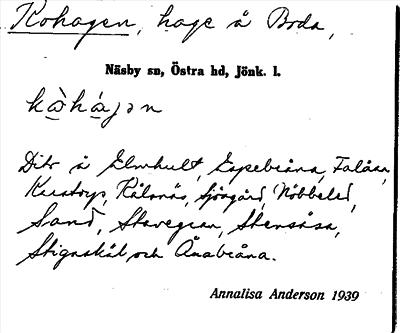 Kohagen, hage å Boda,
Näsby sn, Östra hd, Jönk. l.
kòhájən
Ditr å Elmhult, Espebråna, Falåsa,
Knastorp, Kålsnäs, Sjögård, Nöbbeled,
Sand, Stavegran, Stensåsa,
Stignaskäl och Ånabråna.
Annalisa Anderson 1939